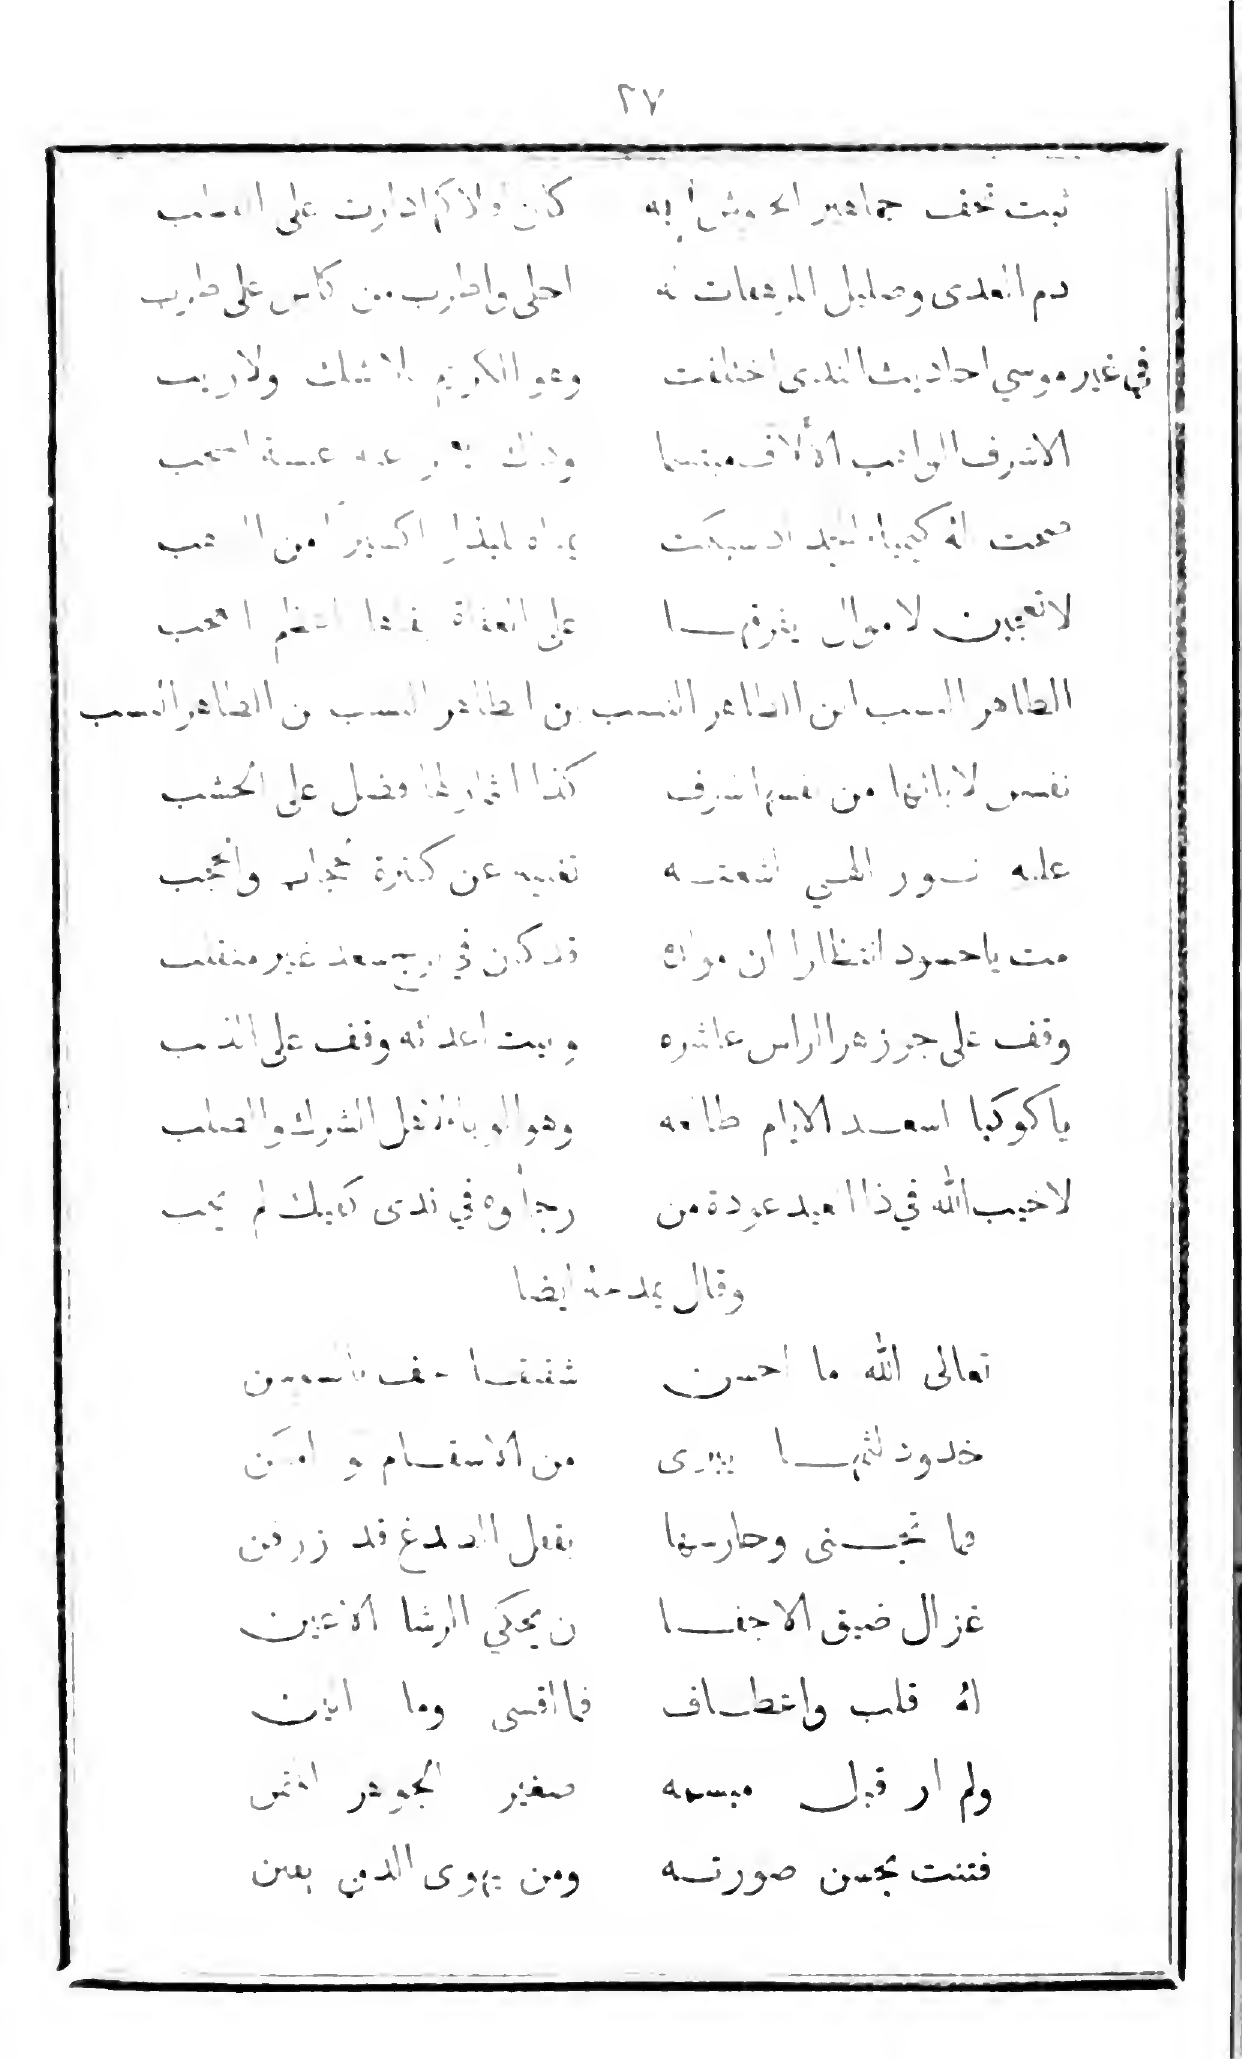 ٢٧
ثبت تحف جماهير الجيوش به كان افلاكها دارت على القطب
دم العدى وصليل المرهفات له احلى واطرب من كاس على طرب
في غير موسي احاديث الندى اختلفت وهو الكريم بلا شك ولا ريب
الاشرف الواهب الألاف مبتسما وذاك عبسة السحب
صحت له كيمياء المجد اذ سبكت يمناه لبذل اكسيرا من الذهب
لا تعجبن لاموال يفرقها على العفاة بقاها اعظم العجب
الطاهر النسب ابن الطاهر النسب بن الطاهر النسب بن الطاهر النسب
نفس لابائها من نفسها شرف كذا الثمار لها فضل على الخشب
عليه نور الهي اشعته تغنيه عن كثرة حجاب والحجب
مت ياحسود انتظارا ان مولده قد كان في برج سعد غير منقلب
وقف على جوزهر الراس عاشره وبيت اعدائه وقف على الذنب
ياكوكبا اسعد الايام طالعه وهو الوبال لاهل الشرك والصلب
لاخيب الله في ذا العيد عودة من رجاؤه في ندى كفيك لم يخب
وقال يمدحه ايضا
تعالى الله ما احسن شقيقا حف بالسوسن
خدود لثمها يبرى من الاسقام لو امكن
فما تجنى وحارسها بقفل الصدغ قد زرفن
غزال ضيق الاجفا ن يحكي الرشا الاعين
له قلب واعطاف فما اقسى وما الين
ولم ار قبل مبسمه صغير الجوهر المثمن
فتنت بحسن صورته ومن يهوى الدمي يفتن